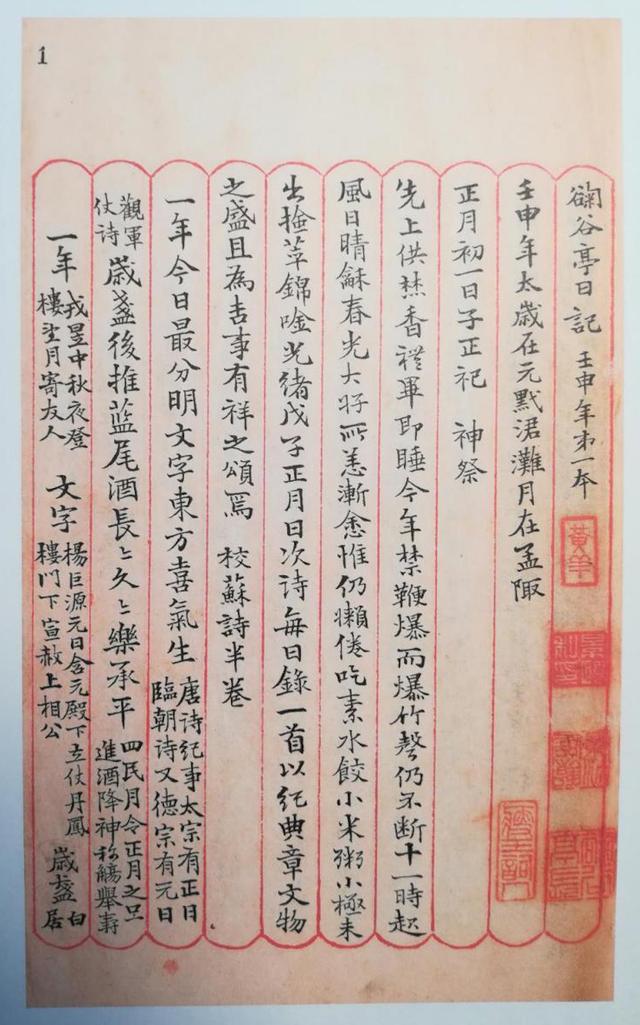 1
谷亭日記 壬申年第一本
壬申年太歲在元默涒灘月在孟陬
正月初一日子正祀 神祭
先上供焚香禮畢即睡今年禁鞭爆而爆竹聲仍不斷十一時起
風日晴龢春光大好所恙漸愈惟仍懶倦吃素水餃小米粥小極未
出撿萃錦唫光緒戊子正月日次詩每日錄一首以紀典章文物
之盛且為吉事有祥之頌焉 校蘇詩半卷
一年今日最分明文字東方喜氣生 唐詩紀事太宗有正日臨朝詩又德宗有元日
觀軍仗詩 歲盞後推藍尾酒長〻久〻樂承平 四民月令正月之旦進酒降神称觴舉壽
一年 戎昱中秋夜登樓望月寄友人 文字 楊巨源元日含元殿下立仗丹鳳樓門下宣赦上相公 歲盞 白居